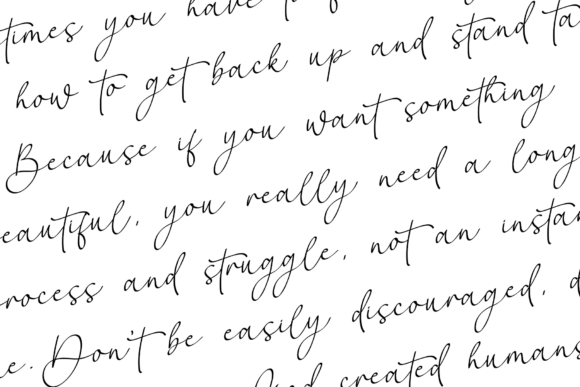 times you have to
how to get back up and stand ta
Because if you want something
eautiful, you really need a long
rocess and struggle, not an instan
e. Don't be easily discouraged, d
And created humans